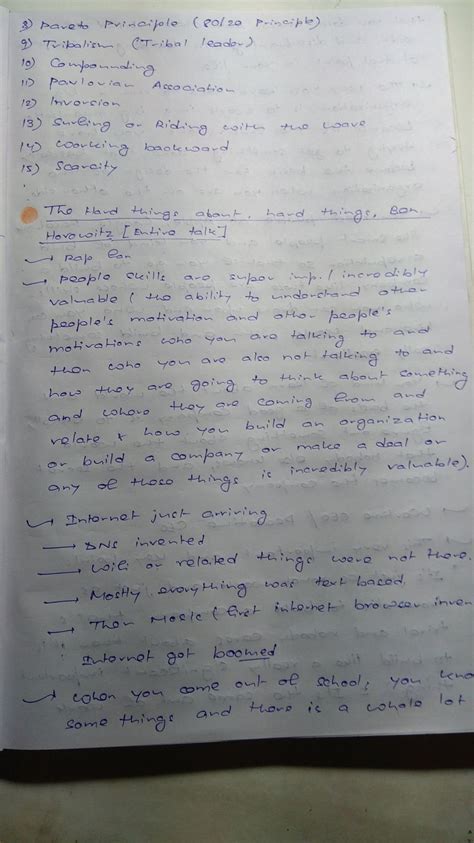 8) Pareto Principle (80/20 Principle)
9) Tribalism (Tribal leader)
10) Compounding
11) Pavlovian Association
12) Inversion
13) Surfing or Riding with the wave
14) Working backward
15) Scarcity
The Hard things about, hard things, Ben
Horowitz [Entire talk]
→ Rap fan
→ People skills are super imp. / incredibly
valuable ( the ability to understand other
people's motivation and other people's
motivations who you are talking to and
then who you are also not talking to and
how they are going to think about something
and where they are coming from and
relate & how you build an organization
or build a company or make a deal or
any of those things is incredibly valuable).
→ Internet just arriving
→ DNS invented
→ Wifi or related things were not there.
→ Mostly everything was text based
→ Then Mosic ( first internet browser inven
Internet got boomed
→ When you come out of school, you know
some things and there is a whole lot